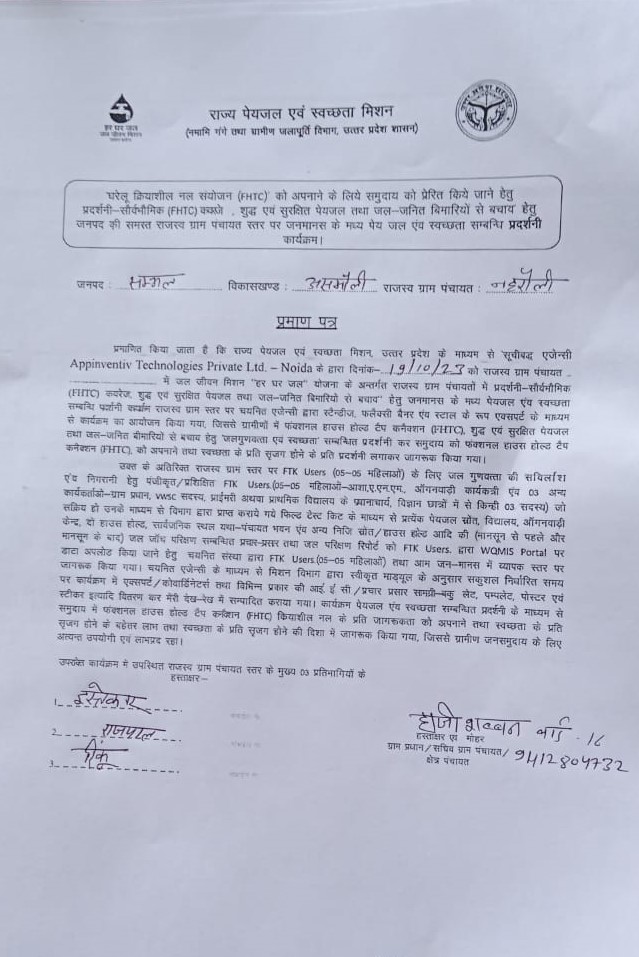 हर घर जल
जल जीवन मिशन
राज्य पेयजल एवं स्वच्छता मिशन
(नमामि गंगे तथा ग्रामीण जलापूर्ति विभाग, उत्तर प्रदेश शासन)
'घरेलू क्रियाशील नल संयोजन (FHTC)' को अपनाने के लिये समुदाय को प्रेरित किये जाने हेतु
प्रदर्शनी-सौर्यभौमिक (FHTC) कवरेज , शुद्ध एवं सुरक्षित पेयजल तथा जल-जनित बिमारियों से बचाव' हेतु
जनपद की समस्त राजस्व ग्राम पंचायत स्तर पर जनमानस के मध्य पेय जल एंव स्वच्छता सम्बन्धि प्रदर्शनी
कार्यक्रम।
जनपद : सम्भल विकासखण्ड : असमौली राजस्व ग्राम पंचायत :
प्रमाण पत्र
प्रमाणित किया जाता है कि राज्य पेयजल एवं स्वच्छता मिशन, उत्तर प्रदेश के माध्यम से 'सूचीबद्ध एजेन्सी
Appinventiv Technologies Private Ltd. – Noida के द्वारा दिनांक- 19/10/23 को राजस्व ग्राम पंचायत
में जल जीवन मिशन "हर घर जल" योजना के अन्तर्गत राजस्व ग्राम पंचायतो में प्रदर्शनी-सौर्यभौमिक
(FHTC) कवरेज, शुद्ध एवं सुरक्षित पेयजल तथा जल-जनित बिमारियों से बचाव" हेतु जनमानस के मध्य पेयजल एंव स्वच्छता
सम्बन्धि प्रदर्शनी कार्यक्रम राजस्व ग्राम स्तर पर चयनित एजेन्सी द्वारा स्टैन्डीज, फ्लैक्सी बैनर एंव स्टाल के रूप एक्सपर्ट के माध्यम
से कार्यक्रम का आयोजन किया गया, जिससे ग्रामीनो में फंक्शनल हाउस होल्ड टैप कनैक्शन (FHTC), शुद्ध एवं सुरक्षित पेयजल
तथा जल-जनित बिमारियों से बचाव हेतु 'जलगुणवत्ता एंव स्वच्छता' सम्बन्धित प्रदर्शनी कर समुदाय को फंक्शनल हाउस होल्ड टैप
कनेक्शन (FHTC), को अपनाने तथा स्वच्छता के प्रति सृजग होने के प्रति प्रदर्शनी लगाकर जागरूक किया गया।
उक्त के अतिरिक्त राजस्व ग्राम स्तर पर FTK Users (05-05 महिलाओं) के लिए जल गुणवत्ता की सर्विलांश
एंव निगरानी हेतु पंजीकृत/प्रशिक्षित FTK Users.(05-05 महिलाओं-आशा,ए.एन.एम., आँगनवाड़ी कार्यकत्री एंव 03 अन्य
कार्यकर्ताओ-ग्राम प्रधान, VWSC सदस्य, प्राईमरी अथवा प्राथमिक विद्यालय के प्रधानाचार्य, विज्ञान छात्रों में से किन्ही 03 सदस्य) जो
सक्रिय हो उनके माध्यम से विभाग द्वारा प्राप्त कराये गये फिल्ड टैस्ट किट के माध्यम से प्रत्येक पेयजल स्रोत, विद्यालय, आँगनवाड़ी
केन्द्र, दो हाउस होल्ड, सार्वजनिक स्थल यथा-पंचायत भवन एंव अन्य निजि स्रोत/हाउस होल्ड आदि की (मानसून से पहले और
मानसून के बाद) जल जाँच परिक्षण सम्बन्धित प्रचार-प्रसर तथा जल परिक्षण रिपोर्ट को FTK Users. द्वारा WQMIS Portal पर
डाटा अपलोड किया जाने हेतु चयनित संस्था द्वारा FTK Users.(05-05 महिलाओं) तथा आम जन-मानस में व्यापक स्तर पर
जागरूक किया गया। चयनित एजेन्सी के माध्यम से मिशन विभाग द्वारा स्वीकृत माड्यूल के अनुसार सकुशल निर्धारित समय
पर कार्यक्रम में एक्सपर्ट/कोवार्डिनेटर्स तथा विभिन्न प्रकार की आई. ई सी/प्रचार प्रसार सामग्री-बुक लेट, पम्पलेट, पोस्टर एवं
स्टीकर इत्यादि वितरण कर मेरी देख-रेख में सम्पादित कराया गया। कार्यक्रम पेयजल एंव स्वच्छता सम्बन्धित प्रदर्शनी के माध्यम से
समुदाय में फंक्शनल हाउस होल्ड टैप कनैक्शन (FHTC) कियाशील नल के प्रति जागरूकता को अपनाने तथा स्वच्छता के प्रति
सृजग होने के बहेतर लाभ तथा स्वच्छता के प्रति सृजग होने की दिशा में जागरूक किया गया, जिससे ग्रामीण जनसमुदाय के लिए
अत्यन्त उपयोगी एवं लाभप्रद रहा।
उपरोक्त कार्यक्रम में उपस्थित राजस्व ग्राम पंचायत स्तर के मुख्य 03 प्रतिभागियों के
हस्ताक्षर-
1.
2. राजपाल
3. रिंकू
हाजी शब्बन वार्ड - 16
हस्ताक्षर एवं मोहर
ग्राम प्रधान/सचिव ग्राम पंचायत/ 9412804732
क्षेत्र पंचायत